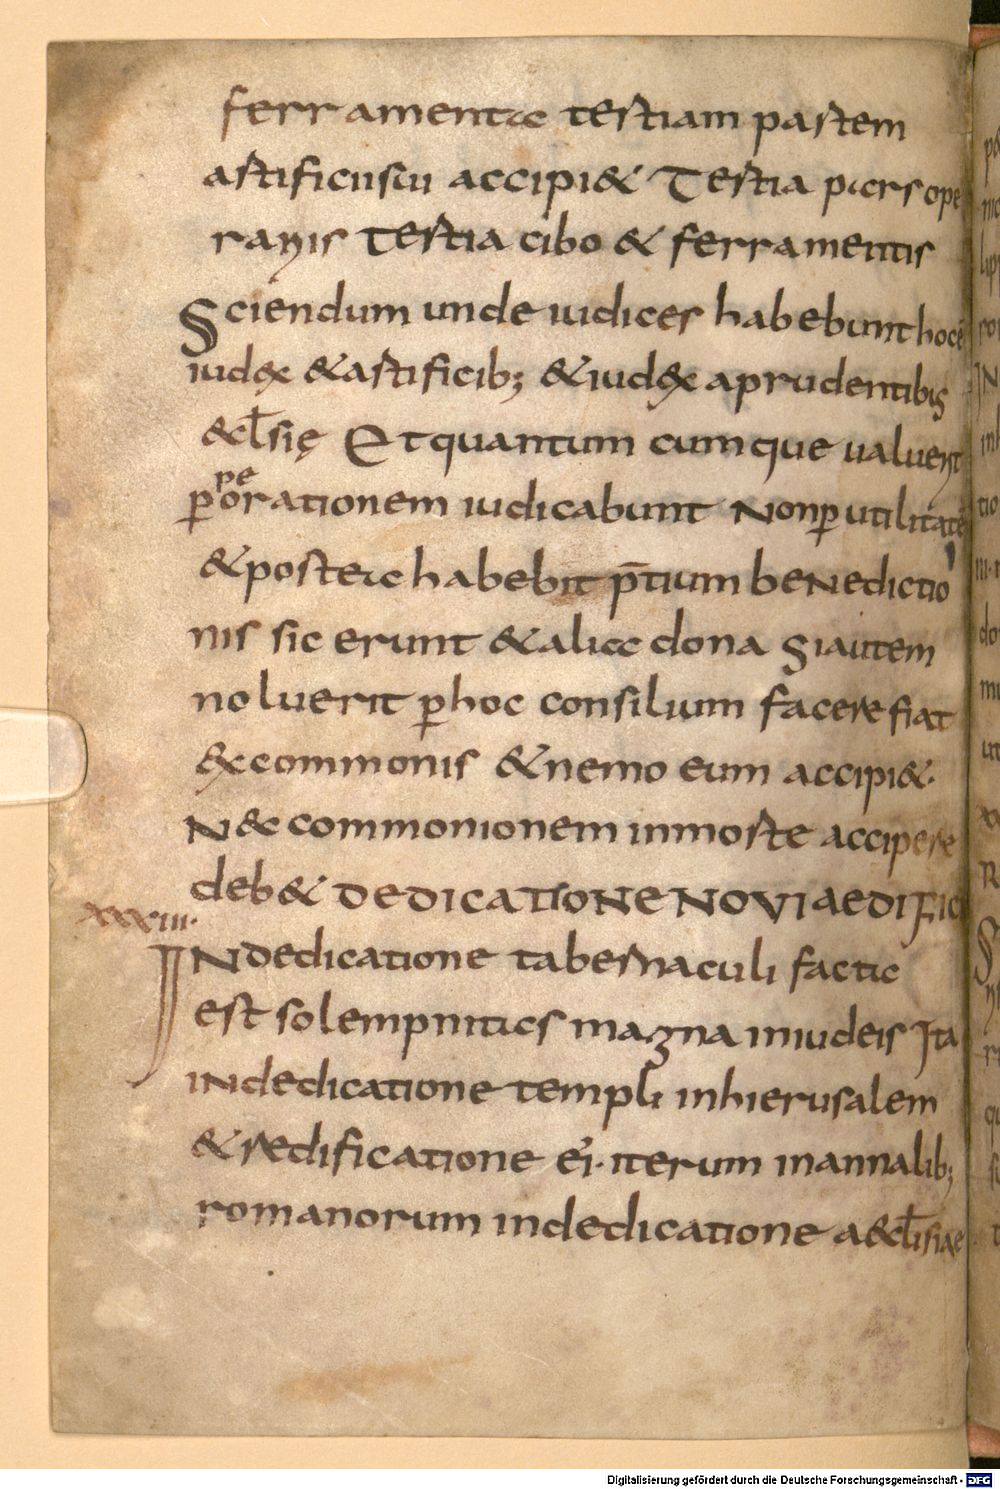 ferramenta tertiam partem
artificis cui accipi& Tertia pars ope
rantis Tertia cibo & ferramentis
Sciendum unde iudices habebunt hocē
iudex &artificib; &iudex aprudentibus
&clsię Et quantumcumque valuerit
ꝑ oꝑerationem iudicabunt Nonꝑ utilitatē
&postea habebit p̄tium beNedictio
nis sic erunt &alia dona Siautem
noluerit ꝑhoc consilium facere fiat
excommonis &nemo eum accipi&.
N&c commonionem inmorte accipere
deb& DEDICATIONE NOVI AEDIFICI
xxxiii. INdedicatione tabernaculi facta
est solempnitas magna iniudeis Ita
iNdedicatione templi inhierusalem
&redificatione ei. iterum inannalib;
romanorum indedicatione a&clisiae
Digitalisierung gefördert durch die Deutsche Forschungsgemeinschaft - DFG